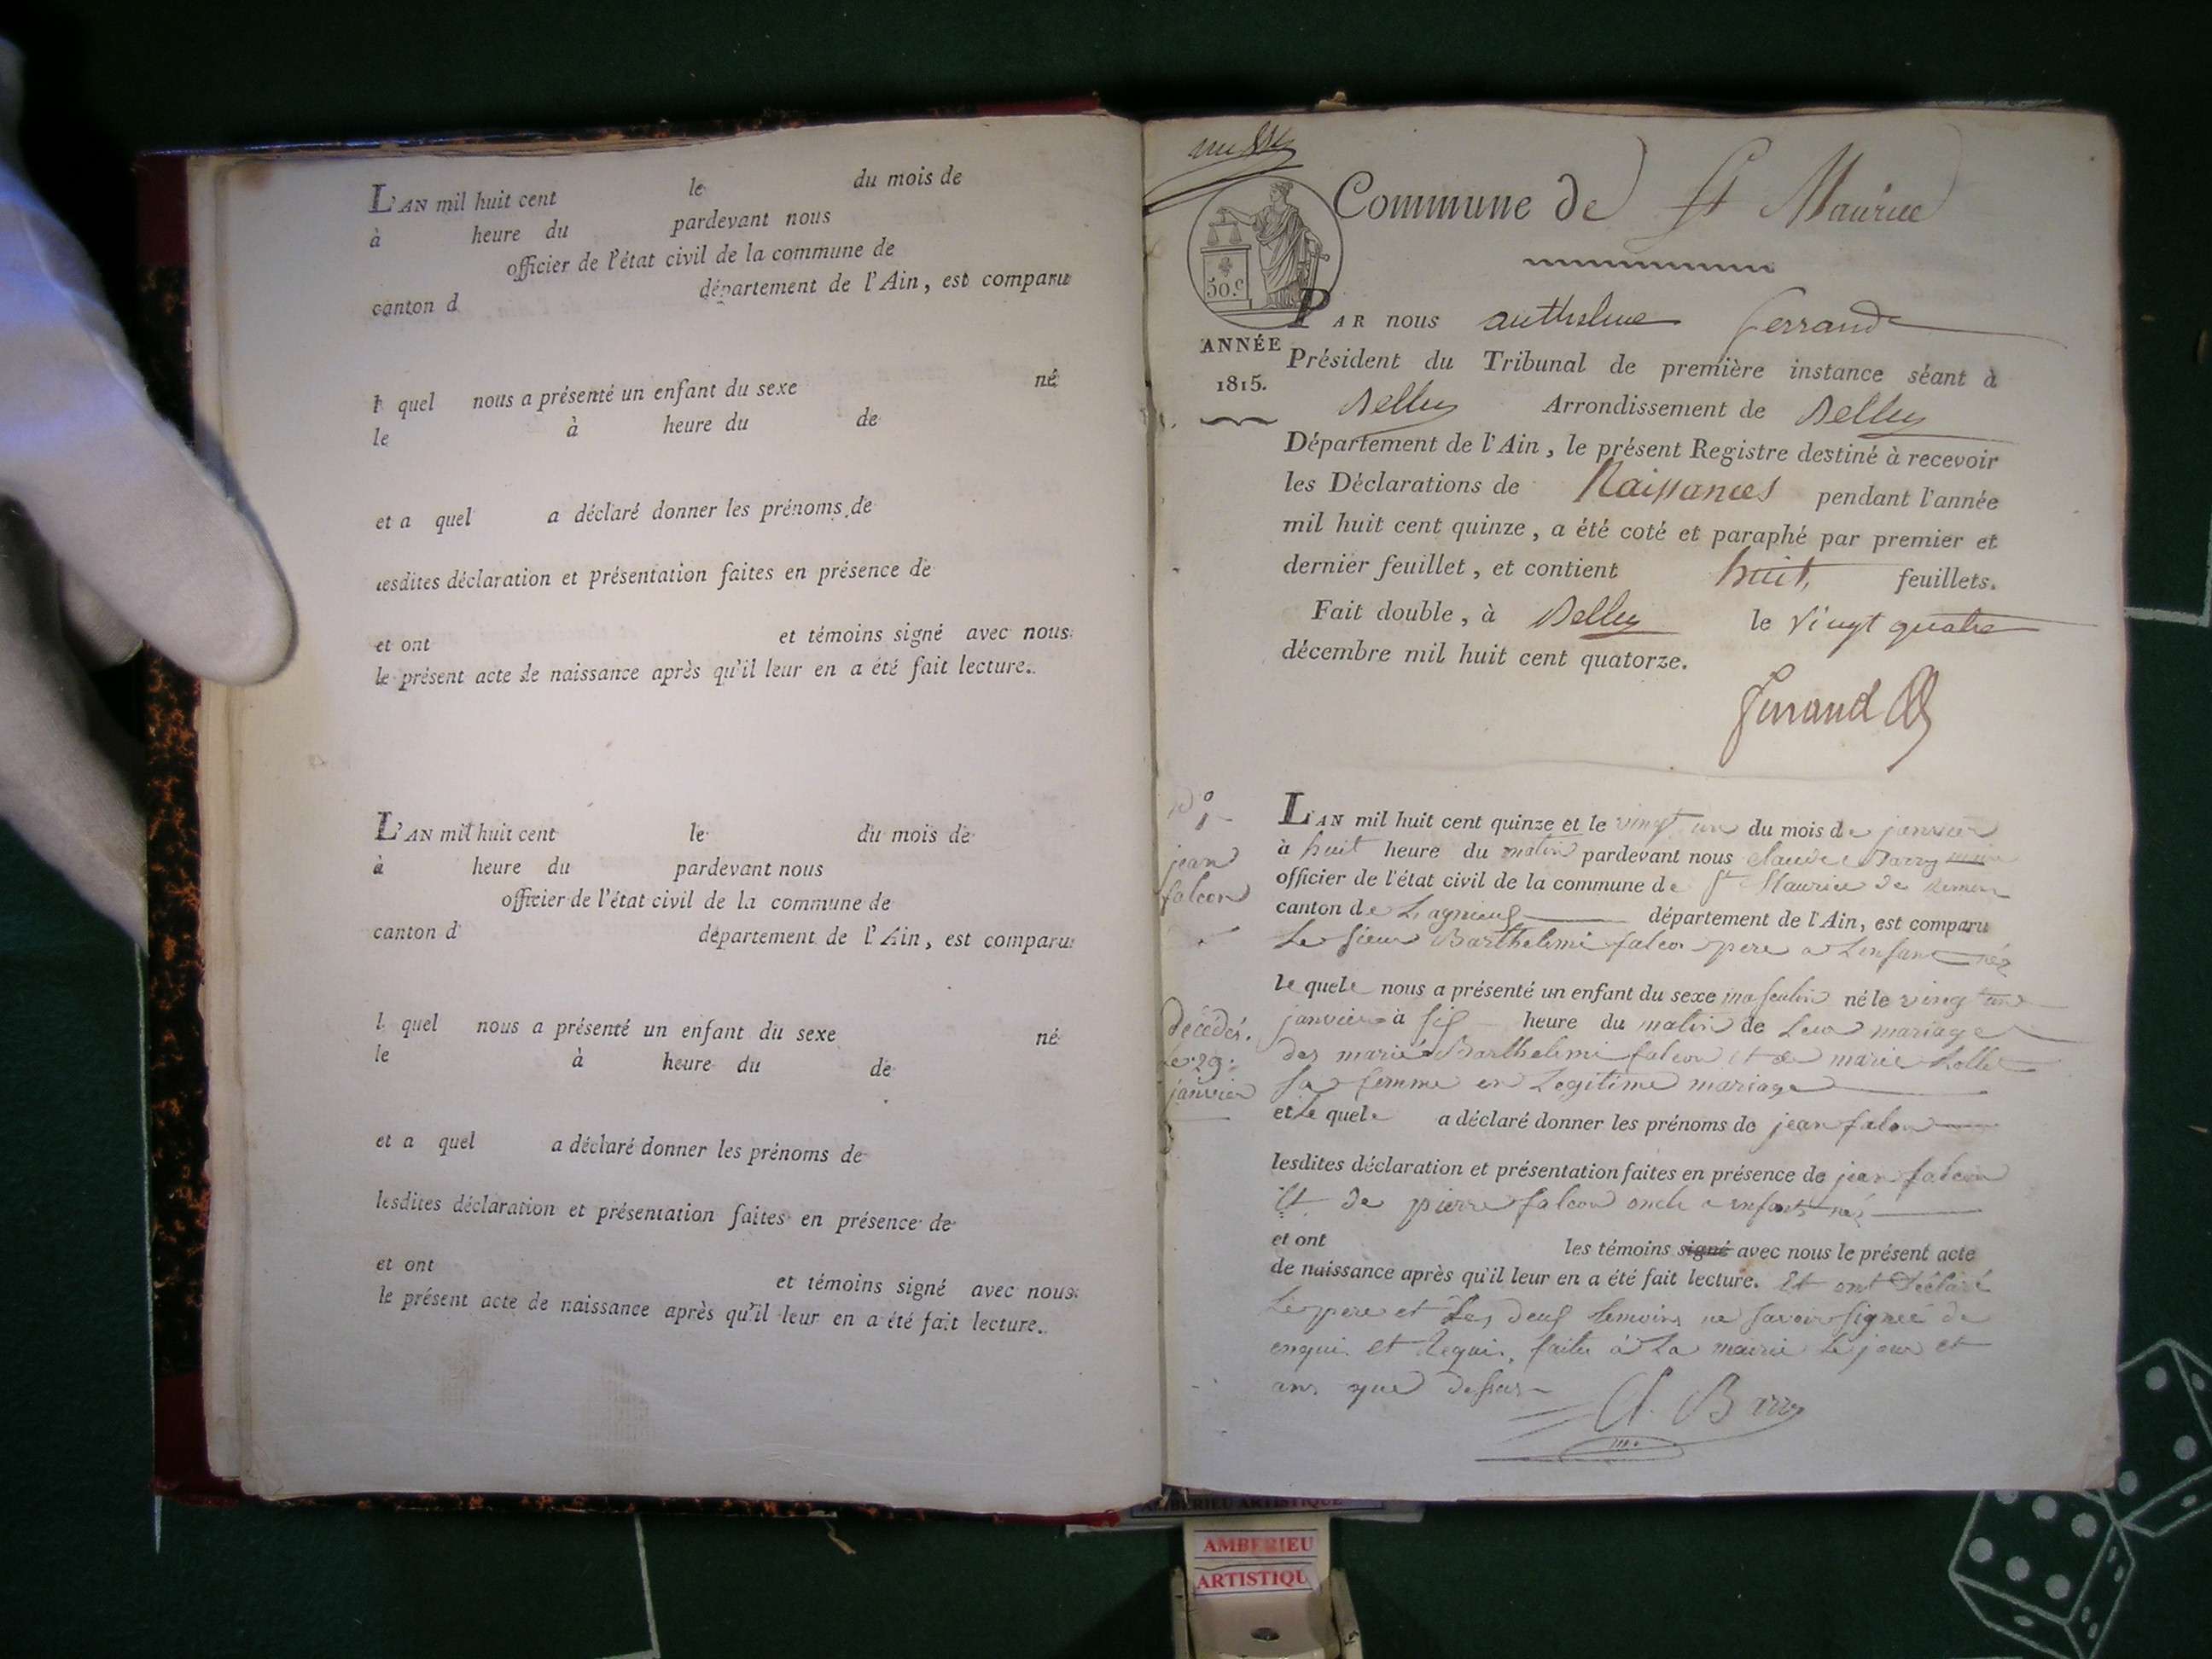 L'AN mil huit cent le du mois de
à heure du pardevant nous
officier de l'état civil de la commune de
canton d département de l'Ain, est comparu
l quel nous a présenté un enfant du sexe né
le à heure du de
et a quel a déclaré donner les prénoms de
lesdites déclaration et présentation faites en présence de
et ont et témoins signé avec nous
le présent acte de naissance après qu'il leur en a été fait lecture.
L'AN mil huit cent le du mois de
à heure du pardevant nous
officier de l'état civil de la commune de
canton d département de l'Ain, est comparu
l quel nous a présenté un enfant du sexe né
le à heure du de
et a quel a déclaré donner les prénoms de
lesdites déclaration et présentation faites en présence de
et ont et témoins signé avec nous
le présent acte de naissance après qu'il leur en a été fait lecture.
Commune de St Maurice
50.c
PAR nous anthelme ferrand
ANNÉE
1815.
Président du Tribunal de première instance séant à
Belley Arrondissement de Belley
Département de l'Ain, le présent Registre destiné à recevoir
les Déclarations de Naissances pendant l'année
mil huit cent quinze, a été coté et paraphé par premier et
dernier feuillet, et contient huit feuillets.
Fait double, à Belley le vingt quatre
décembre mil huit cent quatorze.
ferrand
no 1
jean
falcon
décédé.
le 29.
janvier
L'AN mil huit cent quinze et le vingt un du mois de janvier
à huit heure du matin pardevant nous claude Barry maire
officier de l'état civil de la commune de St Maurice de Remens
canton de Lagnieu département de l'Ain, est comparu
Le sieur Barthelemi falcon pere a Lenfant né
le quele nous a présenté un enfant du sexe masculin né le vingt un
janvier à six heure du matin de Leur mariage
des mariés Barthelemi falcon et de marie
sa femme en Legitime mariage
et le quele a déclaré donner les prénoms de jean falcon
lesdites déclaration et présentation faites en présence de jean falcon
Et de pierre falcon oncle a enfant né
et ont les témoins signé avec nous le présent acte
de naissance après qu'il leur en a été fait lecture. Et ont declaré
Le pere et Les deux temoins ne savoir signée de
enquis et requis, faite à La mairie Le jour et
ans que dessus
Cl. Barry
AMBERIEU ARTISTIQUE
AMBERIEU
ARTISTIQU